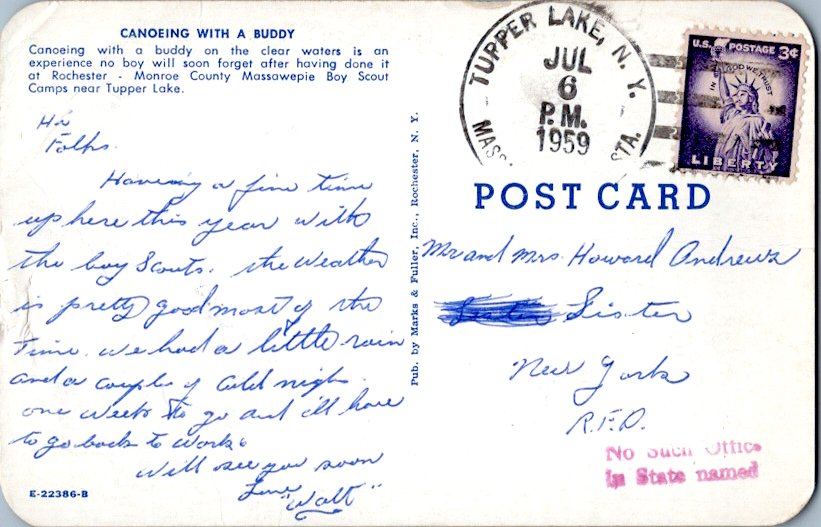 CANOEING WITH A BUDDY
Canoeing with a buddy on the clear waters is an
experience no boy will soon forget after having done it
at Rochester - Monroe County Massawepie Boy Scout
Camps near Tupper Lake.
Hi
Folks
Having a fine time
up here this year with
the boy Scouts. the Weather
is pretty good most of the
Time. we had a little rain
and a couple of cold nights
one week to go and i'll have
to go back to work.
Will see you soon
Love
"Walt"
E-22386-B
Pub. by Marks & Fuller, Inc., Rochester, N. Y.
TUPPER LAKE, N. Y.
JUL
6
P.M.
1959
MASS
STA.
U.S. POSTAGE 3¢
IN GOD WE TRUST
LIBERTY
POST CARD
Mr and Mrs. Howard Andrews
Sister
New York
R.F.D.
No Such Office
In State named